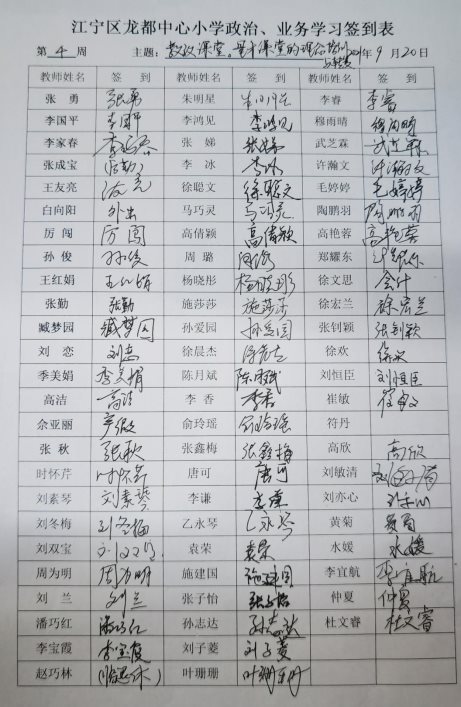 江宁区龙都中心小学政治、业务学习签到表
第 4 周 主题: 9月20日
教师姓名 签 到 教师姓名 签 到 教师姓名 签 到
张 勇 张勇 朱明星 朱明星 李睿 李睿
李国平 李国平 李鸿见 李鸿见 穆雨晴 穆雨晴
李家春 张 娣 张娣 武芝霖 武芝霖
张成宝 李 冰 李冰 许瀚文 许瀚文
王友亮 友亮 徐聪文 徐聪文 毛婷婷 毛婷婷
白向阳 外出 马巧灵 马巧灵 陶鹏羽 陶鹏羽
厉 闯 厉闯 高倩颖 高倩颖 高艳蓉 高艳蓉
孙 俊 孙俊 周 璐 周璐 郑耀东
王红娟 王红娟 杨晓彤 杨晓彤 徐文思 会计
张勤 张勤 施莎莎 施莎莎 徐宏兰 徐宏兰
臧梦园 臧梦园 孙爱园 孙爱园 张钊颖 张钊颖
刘 恋 刘恋 徐晨杰 徐欢 徐欢
季美娟 季美娟 陈月斌 陈月斌 刘恒臣 刘恒臣
高洁 高洁 李 香 李香 崔敏 崔敏
佘亚丽 俞玲瑶 俞玲瑶 符丹
张 秋 张秋 张鑫梅 张鑫梅 高欣 高欣
时怀芹 时怀芹 唐可 唐可 刘敏清
刘素琴 刘素琴 李谦 李谦 刘亦心
刘冬梅 刘冬梅 乙永琴 乙永琴 黄菊 黄菊
刘双宝 袁荣 袁荣 水媛 水媛
周为明 周为明 施建国 施建国 李宜航 李宜航
刘 兰 刘兰 张子怡 张子怡 仲夏 仲夏
潘巧红 潘巧红 孙志达 孙志达 杜文睿 杜文睿
李宝霞 李宝霞 刘子菱 刘子菱
赵巧林 叶珊珊 叶珊珊